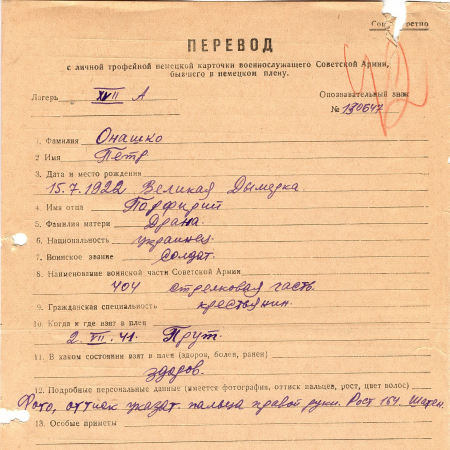 Сов. секретно
ПЕРЕВОД
с личной трофейной немецкой карточки военнослужащего Советской Армии,
бывшего в немецком плену.
Лагерь XVII А
Опознавательный знак
№ 190647
1. Фамилия Онашко
2 Имя Петр
3. Дата и место рождения
15.7.1922 Великая Дымерка
4. Имя отца Порфирий
5. Фамилия матери
6. Национальность украинец.
7. Воинское звание солдат.
8. Наименование воинской части Советской Армии
404 стрелковая часть.
9. Гражданская специальность крестьянин.
10. Когда и где взят в плен
2. VII. 41. Прут.
11. В каком состоянии взят в плен (здоров, болен, ранен)
здоров.
12. Подробные персональные данные (имеется фотография, оттиск пальцев, рост, цвет волос)
Фото, оттиск указат. пальца правой руки. Рост 164. Шатен.
13. Особые приметы